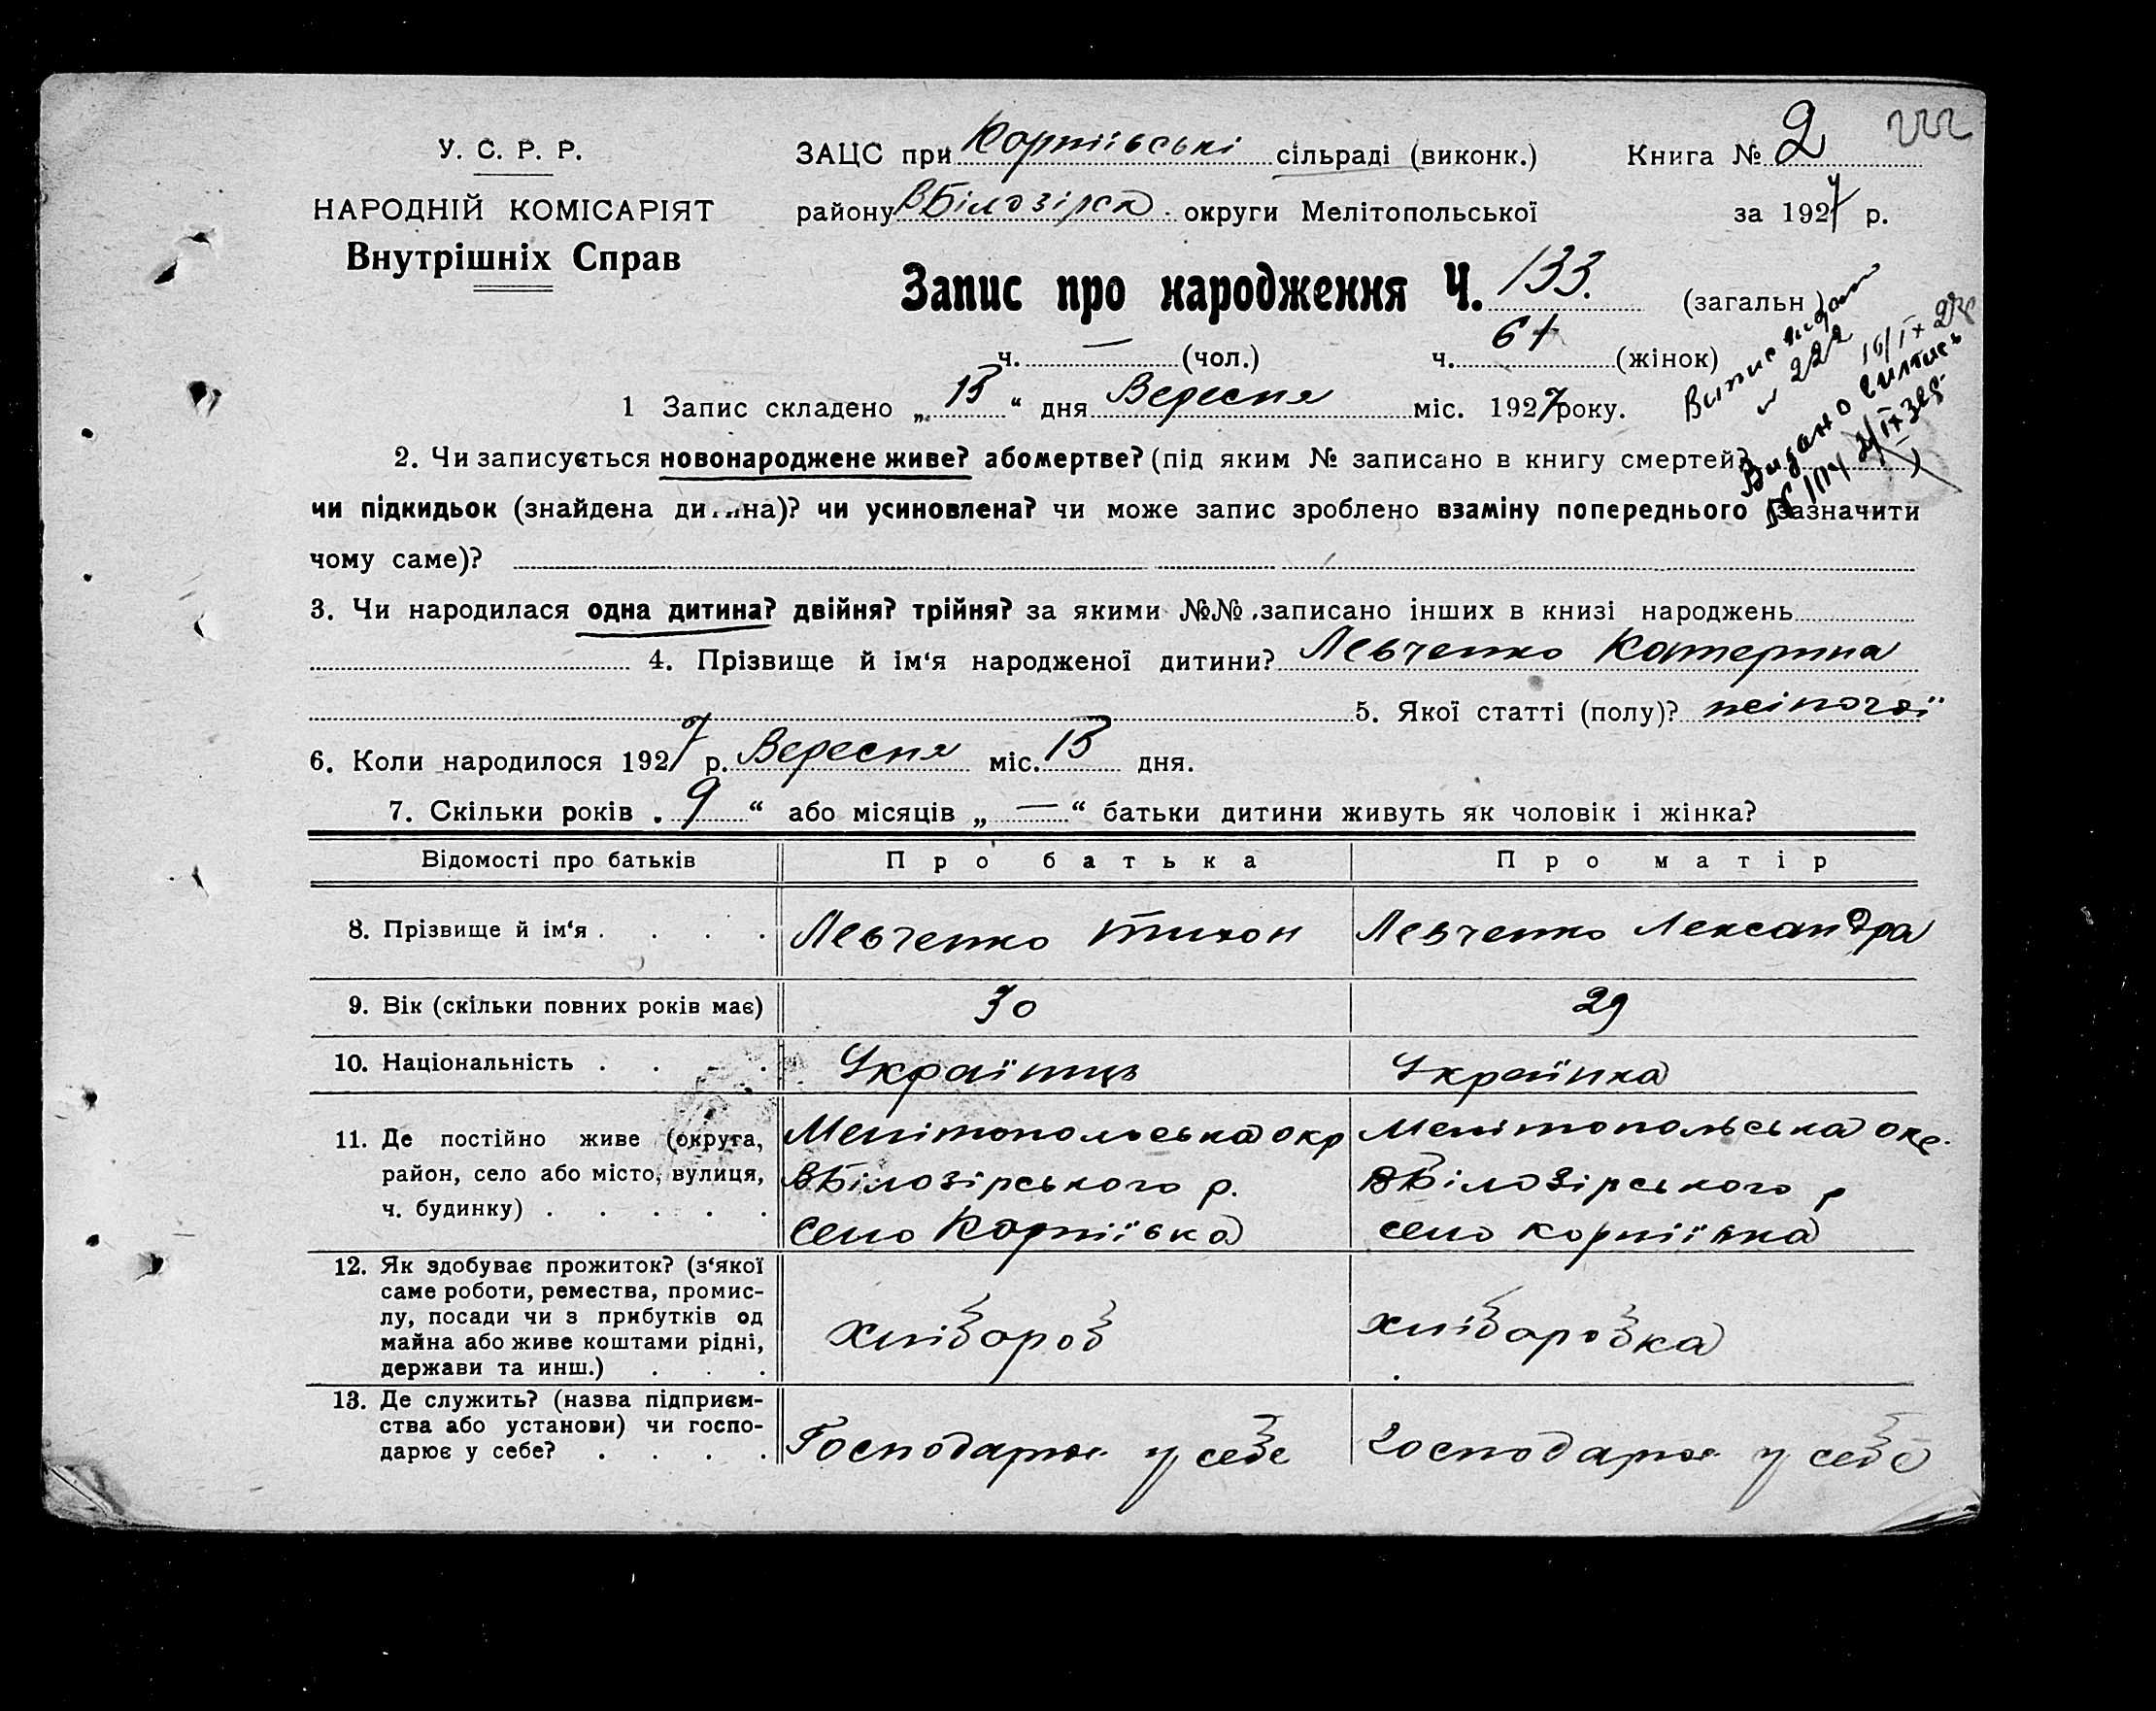 У. С. Р. Р.
НАРОДНІЙ КОМІСАРІЯТ
Внутрішніх Справ
ЗАЦС при Корніївські сільраді (виконк.) Книга № 2 222
району ВБілозірск. округи Мелітопольської за 1927 р.
Запис про народження Ч. 133. (загальн.)
ч. — (чол.) ч. 61 (жінок)
1 Запис складено „ 13 “ дня Вересня міс. 1927 року.
2. Чи записується новонароджене живе? або мертве? (під яким № записано в книгу смертей?)
чи підкидьок (знайдена дитина)? чи усиновлена? чи може запис зроблено взаміну попереднього (зазначити
чому саме)?
3. Чи народилася одна дитина? двійня? трійня? за якими №№ записано інших в книзі народжень
4. Прізвище й ім‘я народженої дитини? Левченко Катерина
5. Якої статті (полу)? жіночої
6. Коли народилося 1927 р. Вересня міс. 13 дня.
7. Скільки років „ 9 “ або місяців „ — “ батьки дитини живуть як чоловік і жінка?
Відомості про батьків Про батька Про матір
8. Прізвище й ім‘я . . . . Левченко Тихон Левченко Лександра
9. Вік (скільки повних років має) 30 29
10. Національність . . . . Українць Українка
11. Де постійно живе (округа, Мелітопольська окр Мелітопольська окр.
район, село або місто, вулиця, ВБілозірського р. ВБілозірського р
ч. будинку) . . . . . Село Корніївка село Корніївка
12. Як здобуває прожиток? (з‘якої
саме роботи, ремества, промис-
лу, посади чи з прибутків од хлібороб хліборобка
майна або живе коштами рідні,
держави та инш.) . . .
13. Де служить? (назва підприєм-
ства або установи) чи госпо-
дарює у себе? . . . . Господарює у себе Господарює у себе
Випис видан
222
Видано